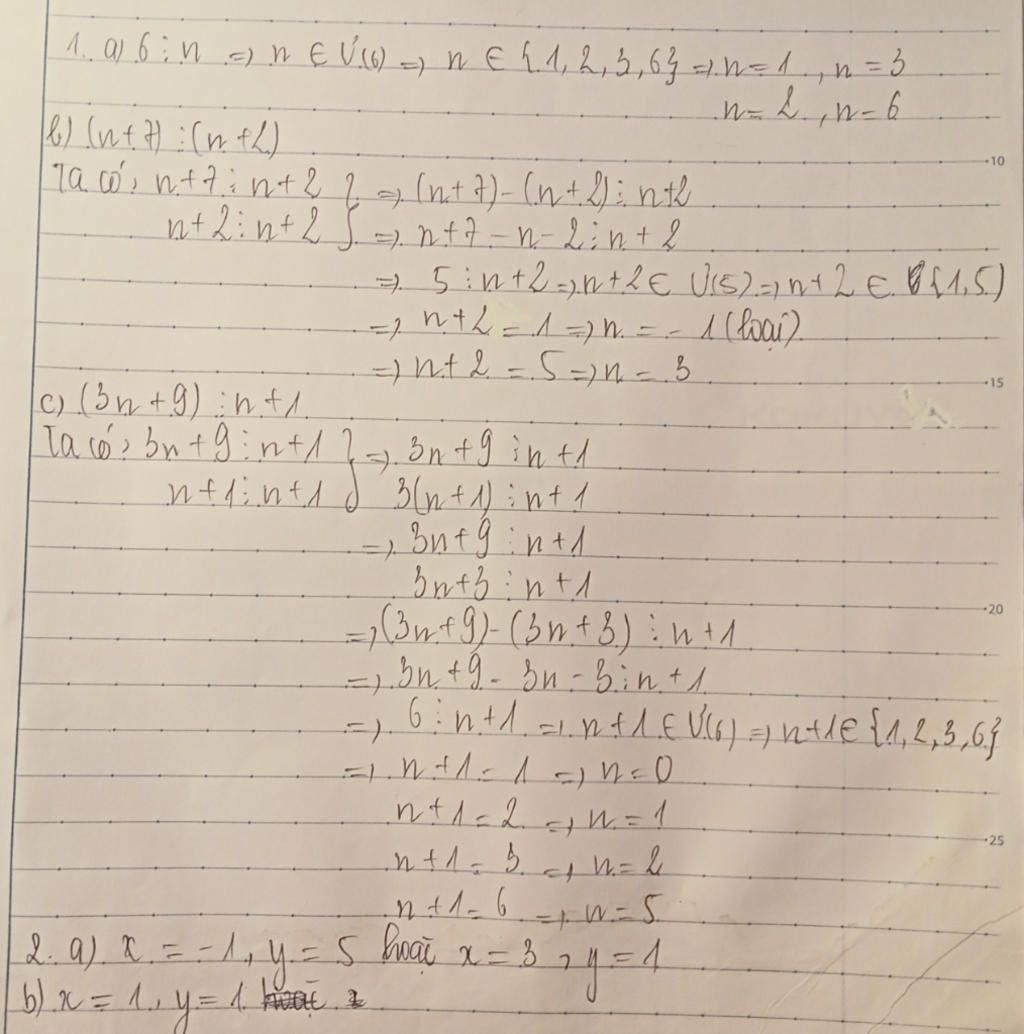 1. a) 6 ⋮ n => n ∈ Ư(6) => n ∈ {1, 2, 3, 6} => n = 1, n = 3
n = 2, n = 6
b) (n+7) ⋮ (n+2)
Ta có: n+7 ⋮ n+2 } => (n+7)-(n+2) ⋮ n+2
n+2 ⋮ n+2 } => n+7-n-2 ⋮ n+2
=> 5 ⋮ n+2 => n+2 ∈ Ư(5) => n+2 ∈ {1, 5)
=> n+2 = 1 => n = -1 (loại)
=> n+2 = 5 => n = 3
c) (3n+9) ⋮ n+1
Ta có: 3n+9 ⋮ n+1 } => 3n+9 ⋮ n+1
n+1 ⋮ n+1 } 3(n+1) ⋮ n+1
=> 3n+9 ⋮ n+1
3n+3 ⋮ n+1
=> (3n+9)-(3n+3) ⋮ n+1
=> 3n+9-3n-3 ⋮ n+1
=> 6 ⋮ n+1 => n+1 ∈ Ư(6) => n+1 ∈ {1, 2, 3, 6}
=> n+1 = 1 => n = 0
n+1 = 2 => n = 1
n+1 = 3 => n = 2
n+1 = 6 => n = 5
2. a) x = -1, y = 5 hoặc x = 3, y = 1
b) x = 1, y = 1
10
15
20
25